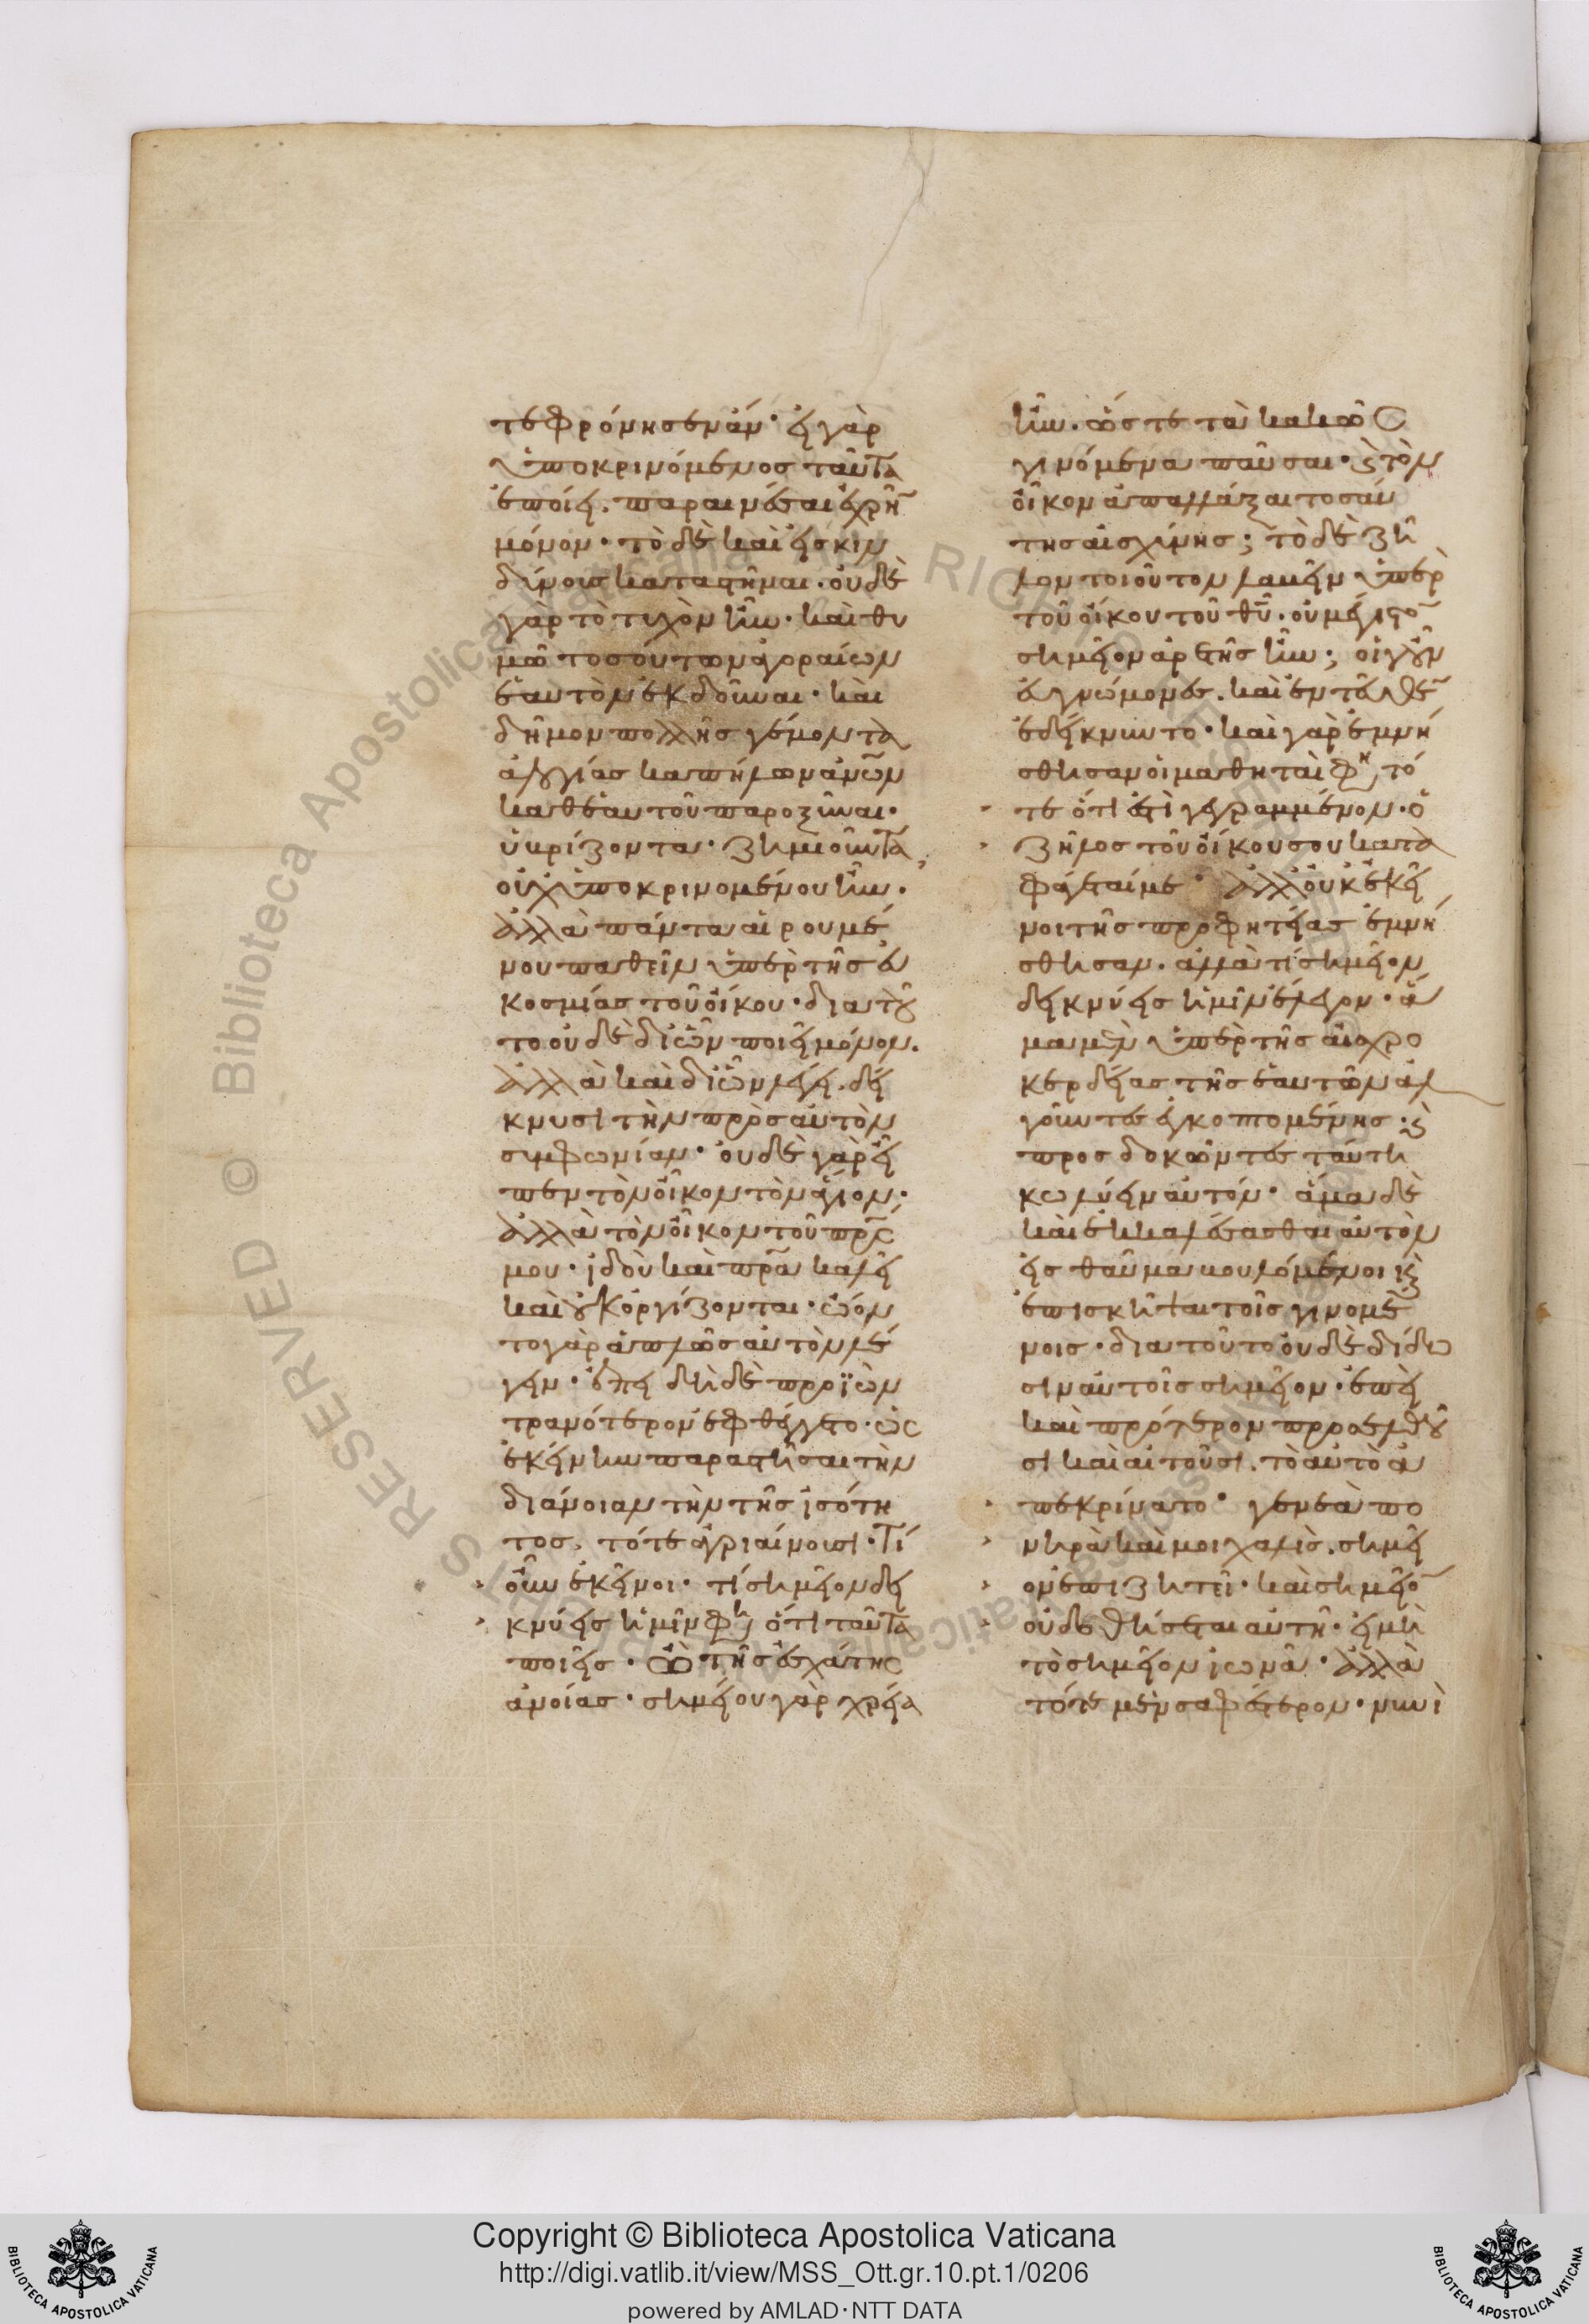 τε φρόνησεν ἄν· εἰ γὰρ
ὑποκρινόμενος ταῦτα
ἐποίει. παραινέσαι ἐχρῆν
μόνον· τὸ δὲ καὶ εἰς κιν
δύνους καταστῆναι. οὐδὲ
γὰρ τὸ τυχὸν ἦν· καὶ θυ
μῶ τοσούτων ἀγοραίων
ἑαυτὸν ἐκδοῦναι· καὶ
δῆμον πολλῆς γέμοντα
ἀλογίας καπήλων ἀνῶν
καθ ἑαυτοῦ παροξῦναι·
ὑβρίζοντα· ζημιοῦντα,
οὐχ ὑποκρινομένου ἦν·
ἀλλὰ πάντα αἱρουμέ
νου παθεῖν ὑπὲρ τῆς εὐ
κοσμίας τοῦ οἴκου· διὰ τοῦ
το οὐδὲ δι ὧν ποιεῖ μόνον.
ἀλλὰ καὶ δι ὧν λέγει. δεί
κνυσι τὴν πρὸς αὐτὸν
συμφωνίαν· οὐδὲ γὰρ εἶ
πεν τὸν οἶκον τὸν ἅγιον·
ἀλλὰ τὸν οἶκον τοῦ πρς
μου· ἰδοὺ καὶ πρα καλεῖ
καὶ οὐκ ὀργίζονται· ὤον
το γὰρ ἁπλῶς αὐτὸν λέ
γειν· ἐπειδὴ δὲ προϊὼν
τρανότερον ἐφθέγγετο· ὡς
ἐκείνην παραστῆσαι τὴν
διάνοιαν τὴν τῆς ἰσότη
τος, τότε ἀγριαίνουσι· Τί
οὖν ἐκεῖνοι· τί σημεῖον δει
κνύεις ἡμῖν φη ὅτι ταῦτα
ποιεῖς· ὢ τῆς ἐσχάτης
ἀνοίας· σημείου γὰρ χρεία
ἦν. ὥστε τὰ κακῶς
γινόμενα παῦσαι· καὶ τὸν
οἶκον ἀπαλλάξαι τοσαύ
της αἰσχύνης; τὸ δὲ ζῆ
λον τοιοῦτον λαβεῖν ὑπὲρ
τοῦ οἴκου τοῦ θυ. οὐ μέγιστον
σημεῖον ἀρετῆς ἦν; οἱ γοῦν
εὐγνώμονες. καὶ ἐντεῦθεν
ἐδείκνυντο· καὶ γὰρ ἐμνή
σθησαν οἱ μαθηταὶ φη τό
τε ὅτι ἐστὶ γεγραμμένον. ὁ
ζῆλος τοῦ οἴκου σου κατα
φάγεταί με· ἀλλ οὐκ ἐκεῖ
νοι τῆς προφητείας ἐμνή
σθησαν. ἀλλὰ τί σημεῖον
δεικνύεις ἡμῖν ἔλεγον· ἅ
μα μὲν ὑπὲρ τῆς αἰσχρο
κερδείας τῆς ἑαυτῶν ἀλ
γοῦντες ἐγκοπτομένης· καὶ
προσδοκῶντες ταύτη
κωλύειν αὐτόν· ἅμα δὲ
καὶ ἐκκαλέσασθαι αὐτὸν
εἰς θαῦμα βουλόμενοι καὶ
ἐπισκῆψαι τοῖς γινομέ
νοις. διὰ τοῦτο οὐδὲ δίδω
σιν αὐτοῖς σημεῖον. ἐπεὶ
καὶ πρότερον προσελθοῦ
σι καὶ αἰτοῦσι. τὸ αὐτὸ ἀ
πεκρίνατο· γενεὰ πο
νηρὰ καὶ μοιχαλὶς. σημεῖ
ον ἐπιζητεῖ· καὶ σημεῖον
οὐ δοθήσεται αὐτῆ· εἰ μὴ
τὸ σημεῖον ἰωνᾶ· ἀλλὰ
τότε μὲν σαφέστερον. νυνὶ
Copyright © Biblioteca Apostolica Vaticana
http://digi.vatlib.it/view/MSS_Ott.gr.10.pt.1/0206
powered by AMLAD·NTT DATA